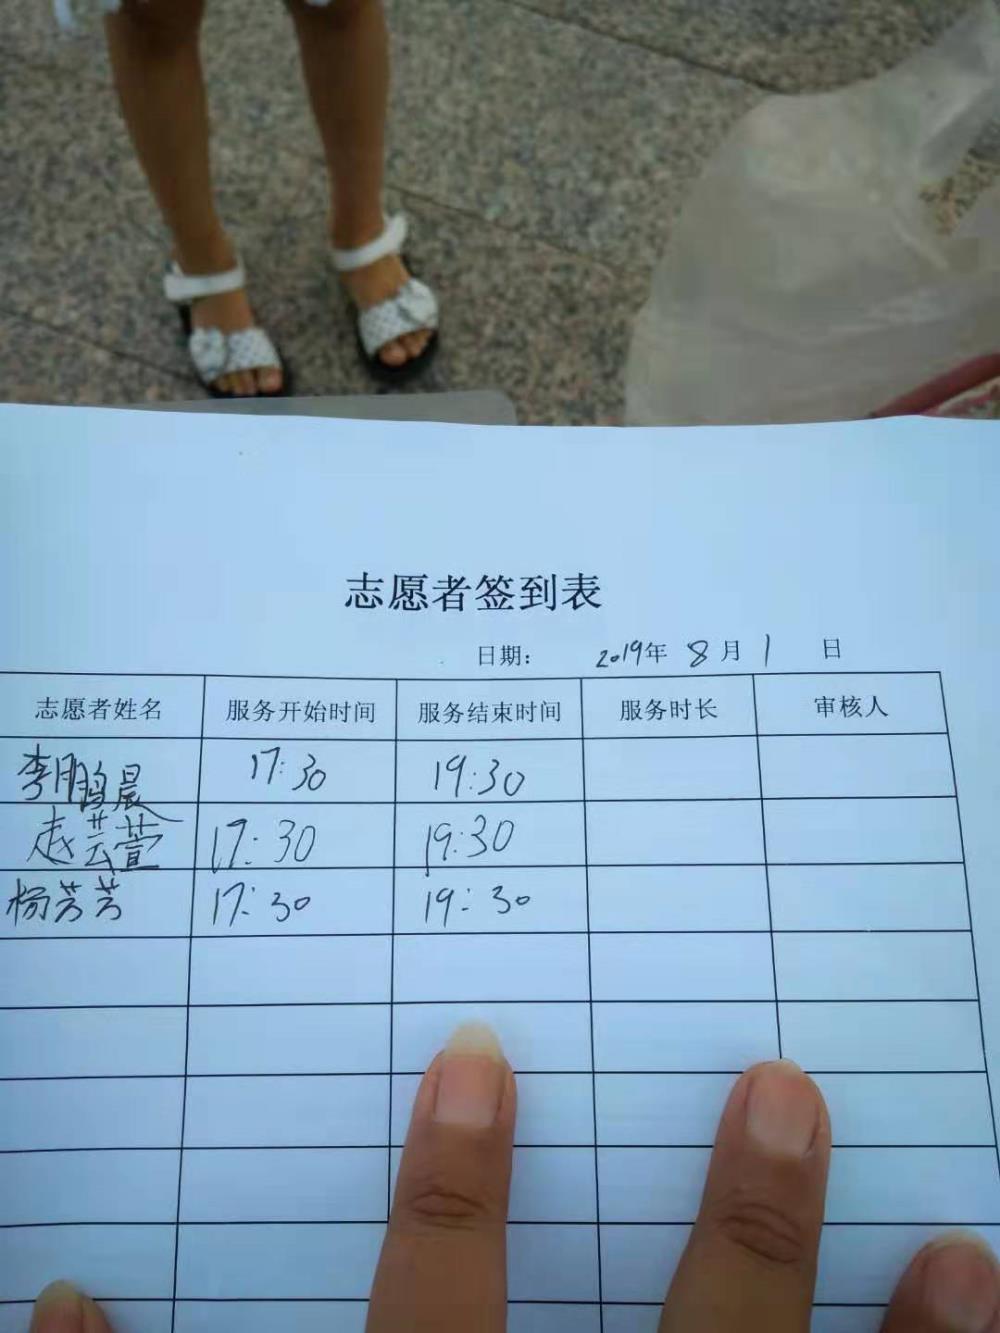 志愿者签到表
日期： 2019年 8月 1 日
志愿者姓名 服务开始时间 服务结束时间 服务时长 审核人
李鹏晨 17:30 19:30
赵芸萱 17:30 19:30
杨芳芳 17:30 19:30